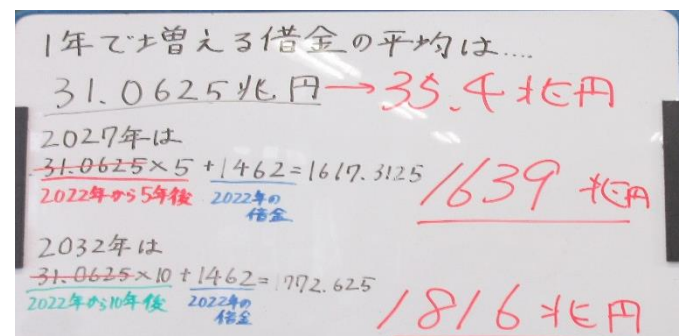 1年で増える借金の平均は....
31.0625兆円→35.4兆円
2027年は
31.0625×5+1462=1617.3125
1639兆円
2022年から5年後 2022年の借金
2032年は
31.0625×10+1462=1772.625
2022年から10年後 2022年の借金
1816兆円